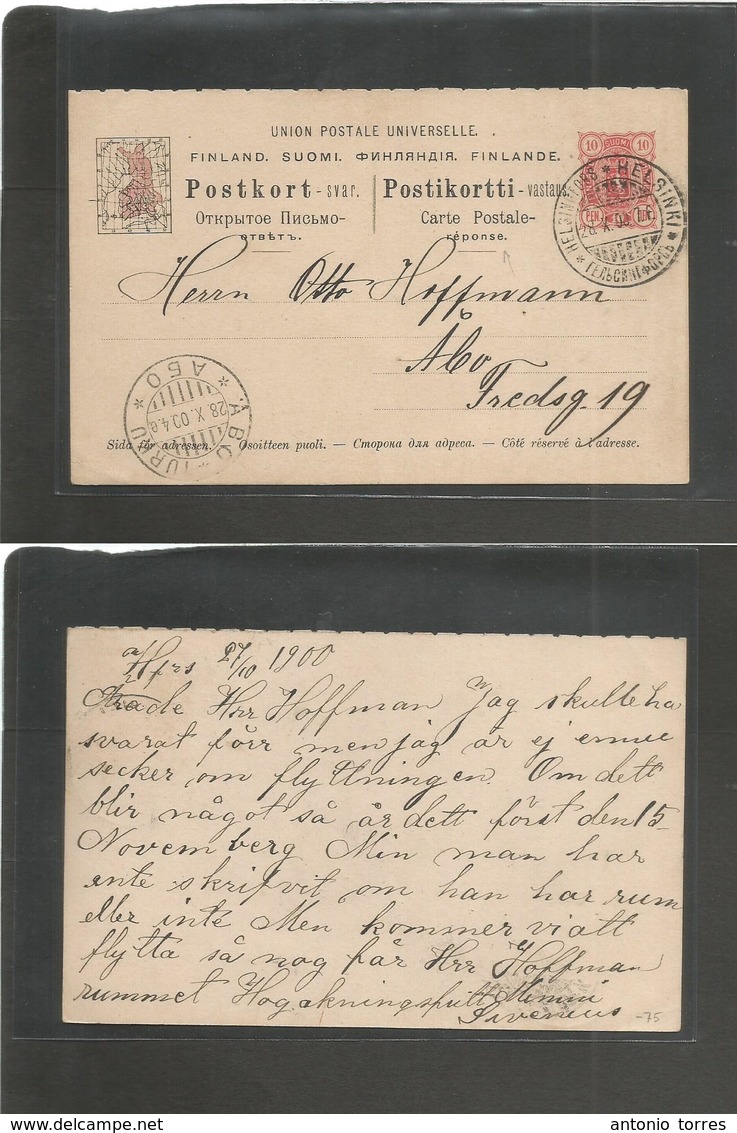 UNION POSTALE UNIVERSELLE.
FINLAND. SUOMI. ФИНЛЯНДІЯ. FINLANDE.
Postkort - svar. Postikortti - vastaus.
Открытое Письмо- Carte Postale-
отвѣтъ. réponse.
10 SUOMI 10
PEN.
HELSINGFORS * HELSINKI
28.X.00
* ГЕЛЬСИНГФОРСЪ *
Herrn Otto Hoffmann
Åbo
Fredsg. 19
ÅBO * TURKU * АБО *
28.X.00
Sida för adressen. — Osoitteen puoli. — Сторона для адреса. — Côté réservé à l'adresse.
Hfrs 27/10 1900
Ärade Herr Hoffman Jag skulle ha
svarat förr men jag är ej ennu
secker om flyttningen. Om dett
blir något så är dett först den 15
Novemberg Min man har
ente skrifvit om han har rum
eller inte Men kommer vi att
flytta så nog får Herr Hoffman
rummet Hogakningsfullt Mimmi
Sivenius
-75
antonio torres